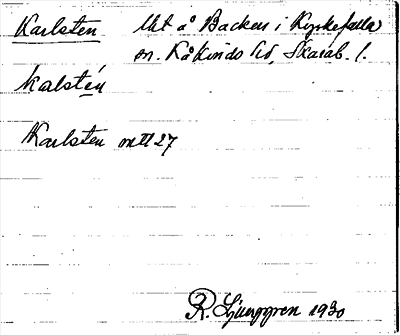 Karlsten Ukt å Backen i Kyrkefalla
sn. Kåkinds hd, Skarab. l.
kalstén
Karlsten mtl 27
R. Ljunggren 1930